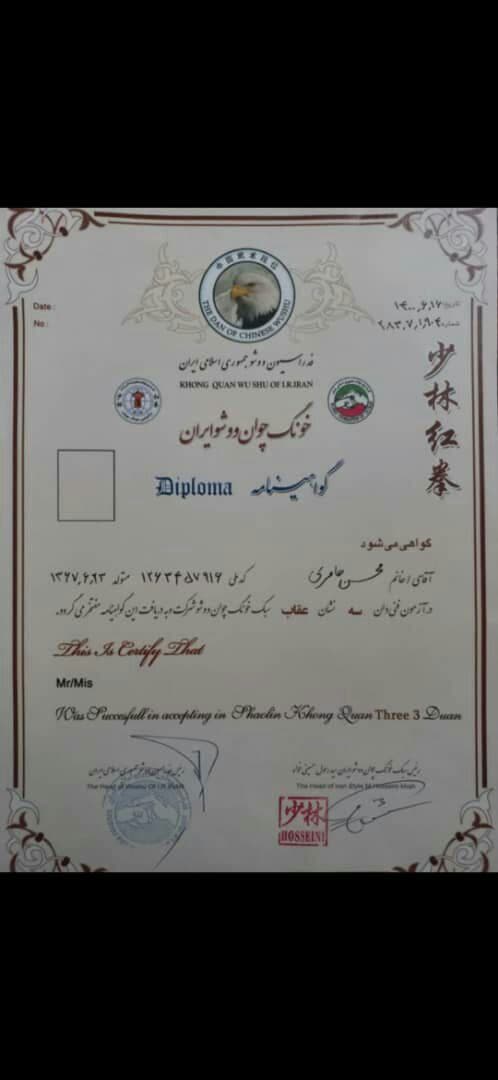 中国武术段位
THE DAN OF CHINESE WUSHU
Date :
No :
تاریخ: ۱۴۰۰,۶,۱۶
شماره:
فدراسیون ووشو جمهوری اسلامی ایران
KHONG QUAN WU SHU OF I.R.IRAN
خونگ چوان ووشو ایران
少林红拳
گواهینامه
Diploma
گواهی می شود
آقای / خانم محسن عامری که ملی متولد ۱۳۶۷,۶,۲۳
در آزمون فنی دان سه نشان عقاب سبک خونگ چوان ووشو شرکت و به دریافت این گواهینامه مفتخر می گردد.
This Is Certify That
Mr/Mis
Was Succesfull in accepting in Shaolin Khong Quan Three 3 Duan
رئیس فدراسیون ووشو جمهوری اسلامی ایران
The Head of Wushu Of I.R.IRAN
رئیس سبک خونگ چوان ووشو ایران سید رسول حسینی خواه
The Head of Iran Style M.Hosseini khah
少林
HOSSEINI